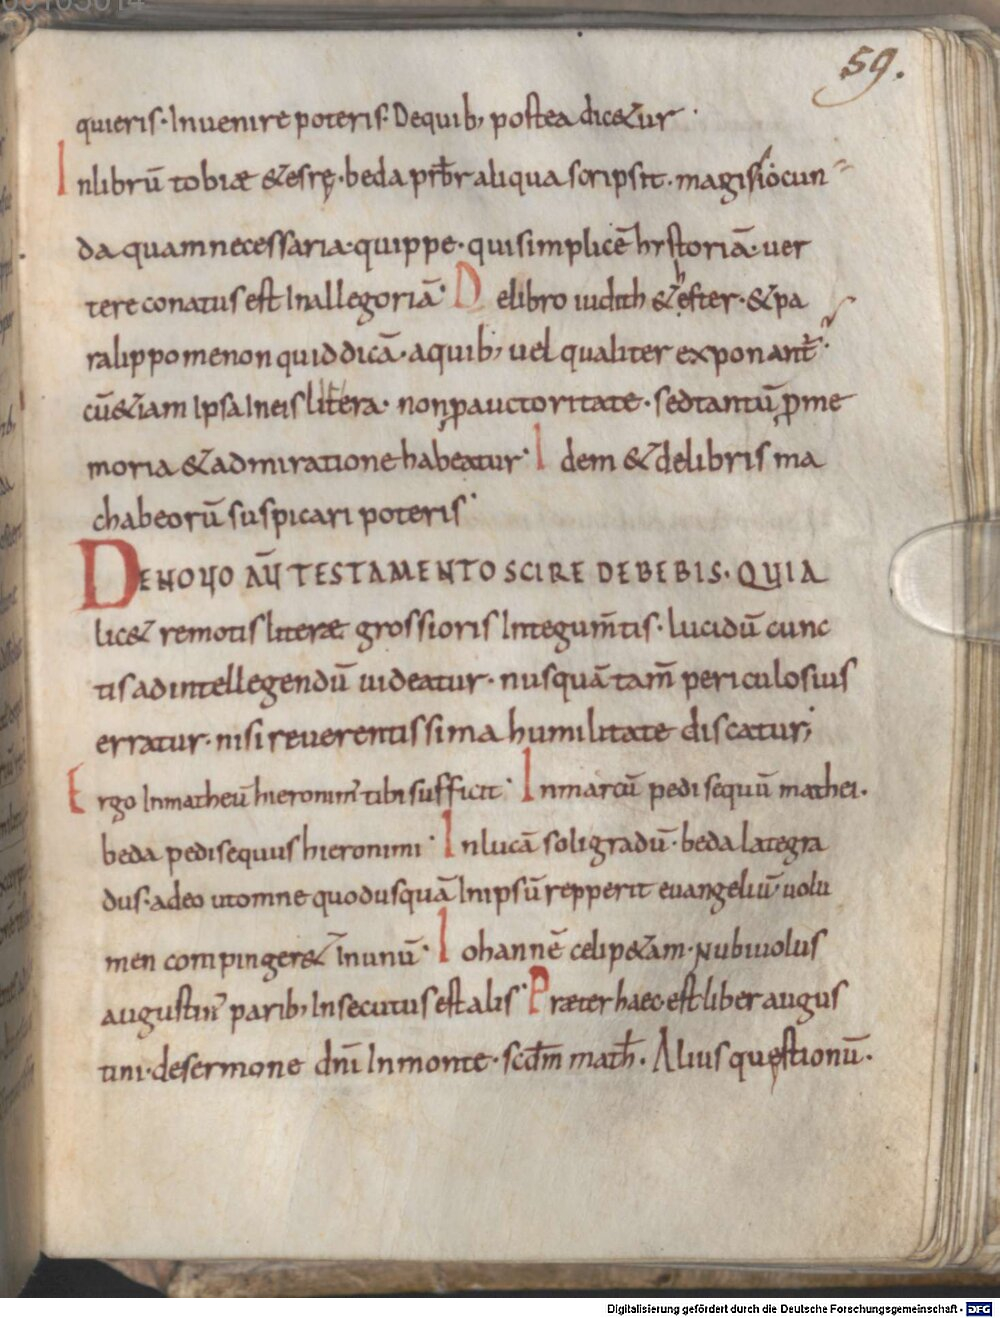 59.
quieris· Invenire poteris· De quib; postea dic&ur·
In librū tobiæ & esrę· beda prƀr aliqua scripsit· magis iocun
da quam necessaria· quippe· qui simplicē hystoriā· ver
tere conatus est In allegoriā· De libro iudith & hester· & pa
ralippomenon quid dicā· a quib; vel qualiter exponant̄·
cū &iam Ipsa In eis litera· non ꝑ auctoritate· sed tantū ꝑ me
moria & admiratione habeatur· Idem & de libris ma
chabeorū suspicari poteris·
DE NOVO AŪ TESTAMENTO SCIRE DEBEBIS· QUIA
lic& remotis literæ grossioris Integum̄tis· lucidū cunc
tis ad intellegendū uideatur· nusquā tam̄ periculosius
erratur· nisi reverentissima humilitate discatur;
Ergo In matheū hieronim' tibi sufficit· In marcū pedisequū mathei·
beda pedisequus hieronimi· In lucā soligradū· beda lategra
dus· adeo ut omne quod usquā In ipsū repperit euangeliū· uolu
men compinger& In unū· Iohannē celip&am· nubiuolus
augustin' parib; Insecutus est alis· Præter haec est liber augus
tini· de sermone dn̄i In monte· scdm math· Alius quęstionū·
Digitalisierung gefördert durch die Deutsche Forschungsgemeinschaft - DFG